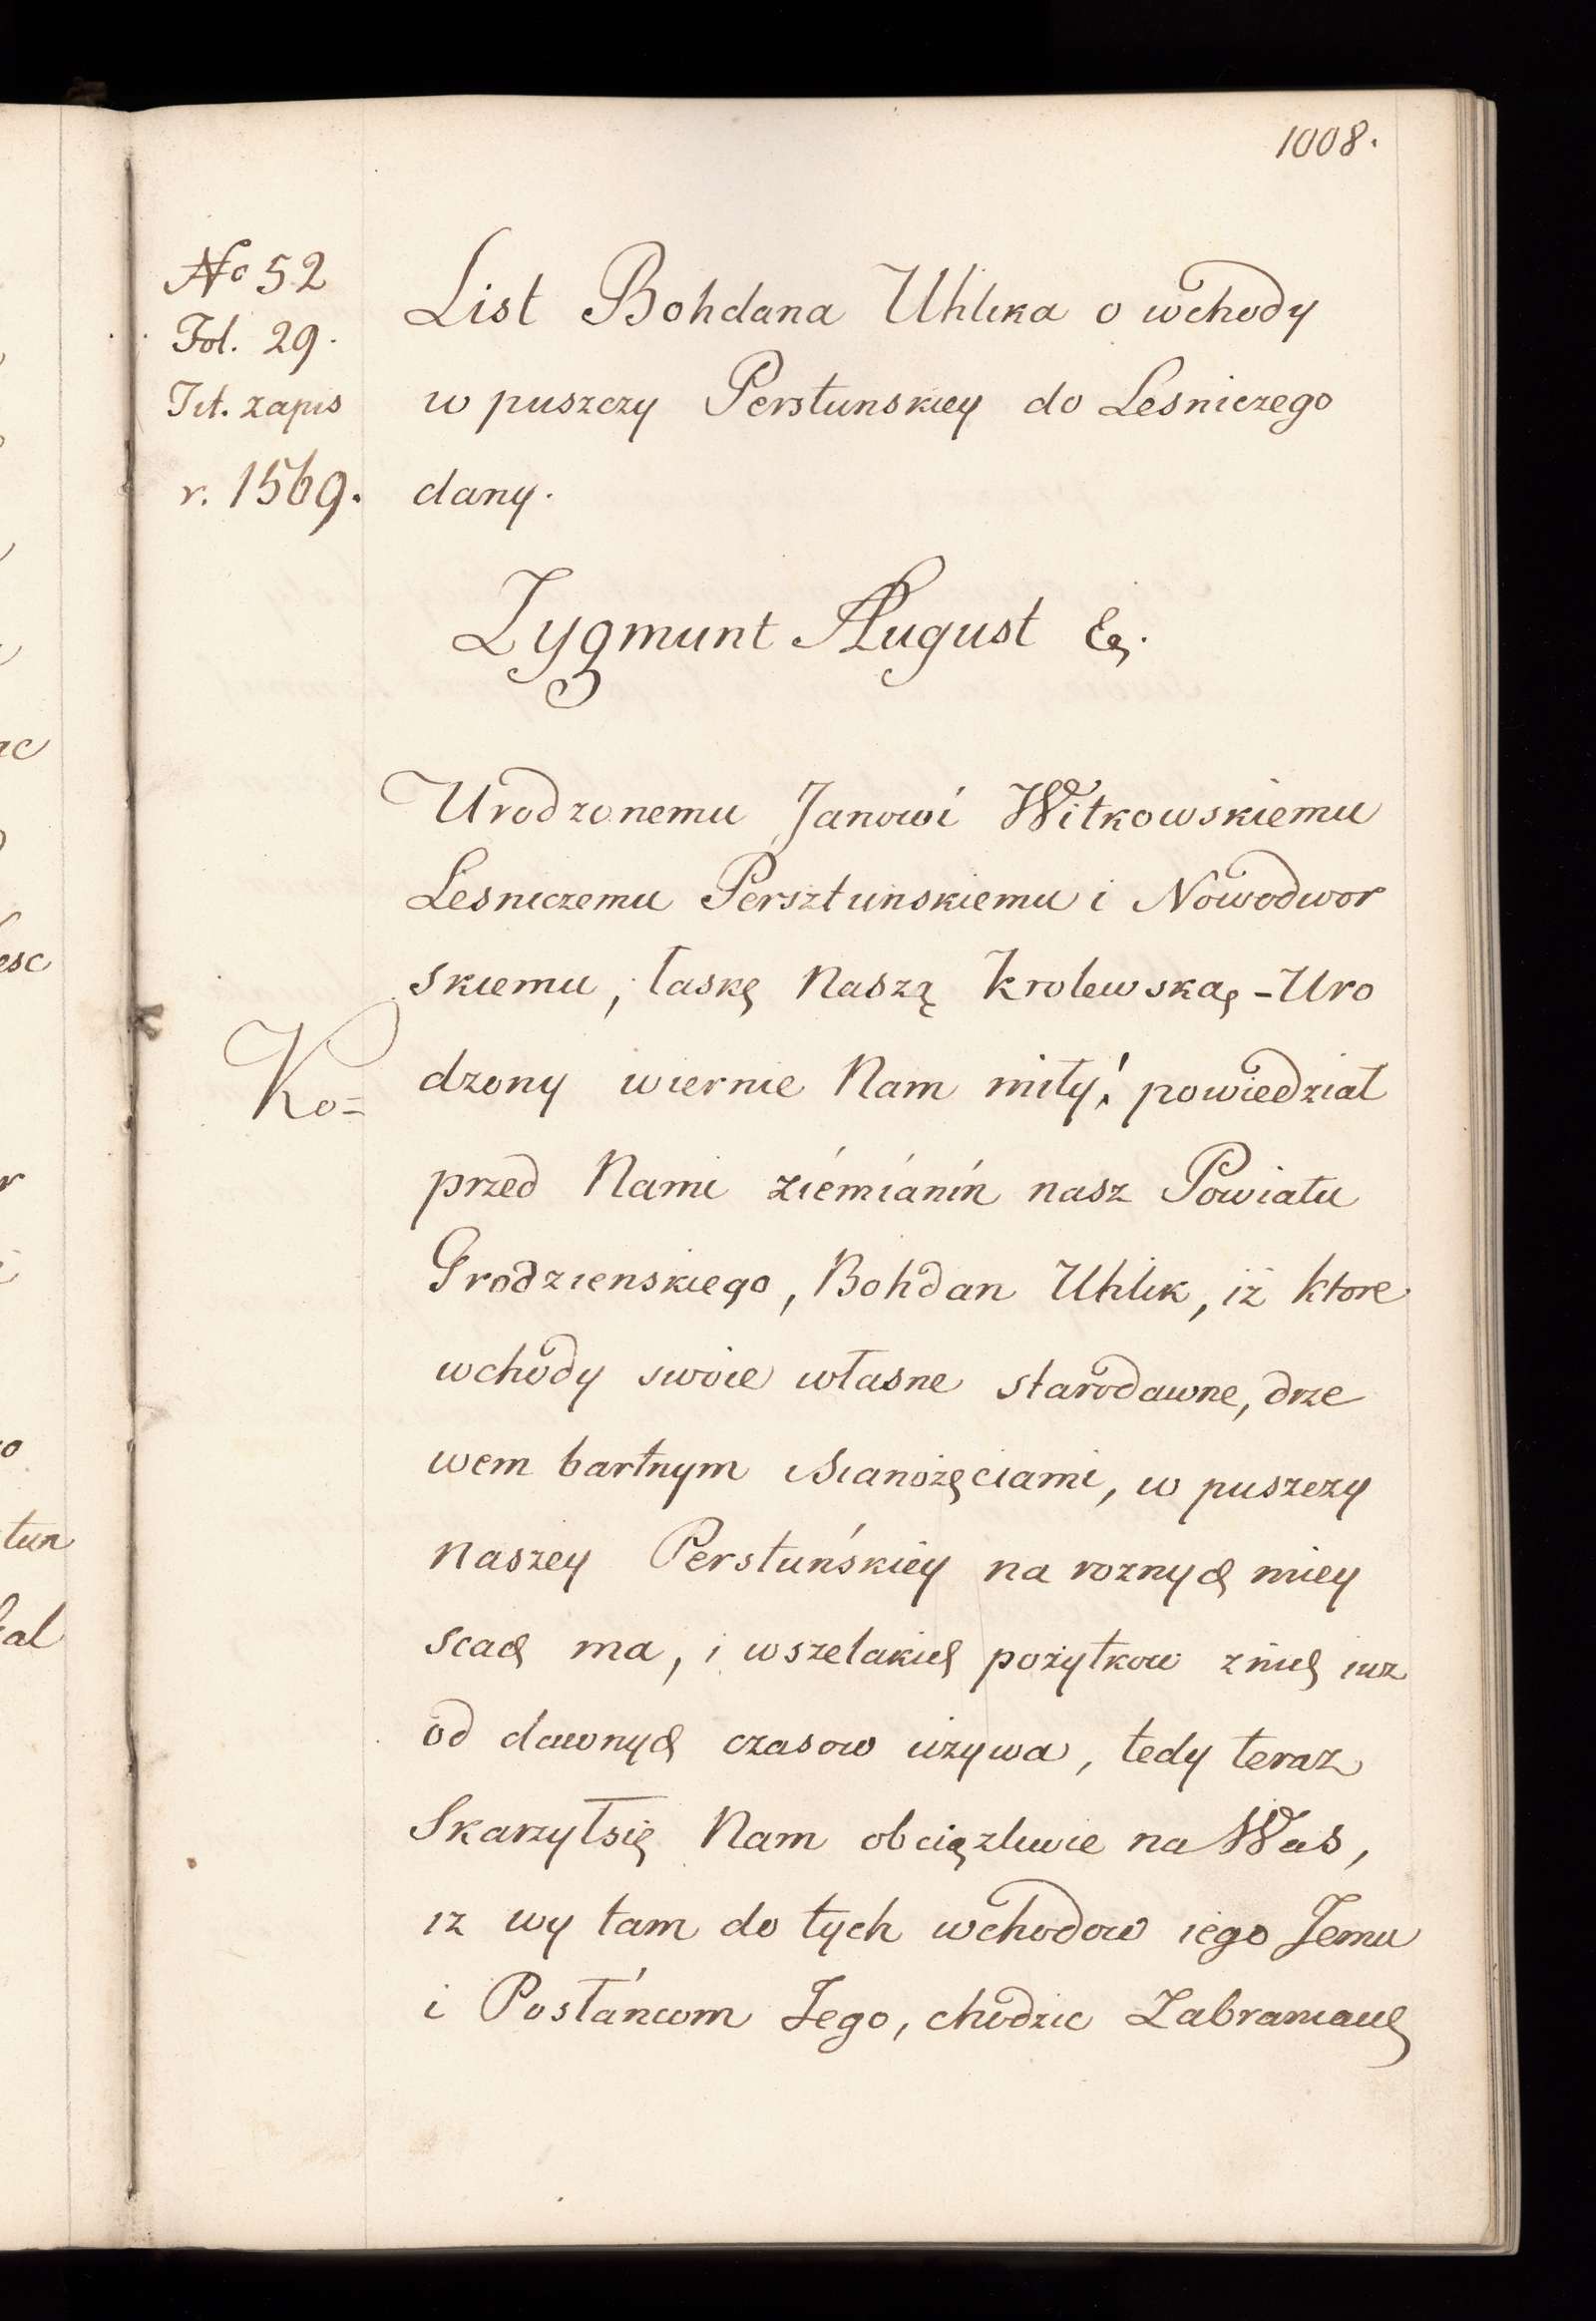 1008.
No 52
Fol. 29.
Tit. zapis
r. 1569.
List Bohdana Uhlika o wchody
w puszczy Perstunskiey do Lesniczego
dany.
Zygmunt August &c.
Urodzonemu Janowi Witkowskiemu
Lesniczemu Persztunskiemu i Nowodwor
skiemu, łaskę Naszą Krolewską - Uro
Ko=
dzony wiernie Nam miły! powiedział
przed Nami ziémiánin nasz Powiatu
Grodzienskiego, Bohdan Uhlik, iż ktore
wchody swoie własne starodawne, drze
wem bartnym i Sianożęciami, w puszczy
Naszey Perstuńskiey na roznych miey
scach ma, i wszelakich pożytkow z nich iuz
od dawnych czasow używa, tedy teraz
Skarzył się Nam obciązliwie na Was,
iz wy tam do tych wchodow iego Jemu
i Posłáncom Jego, chodzic Zabraniacie
tun
esc